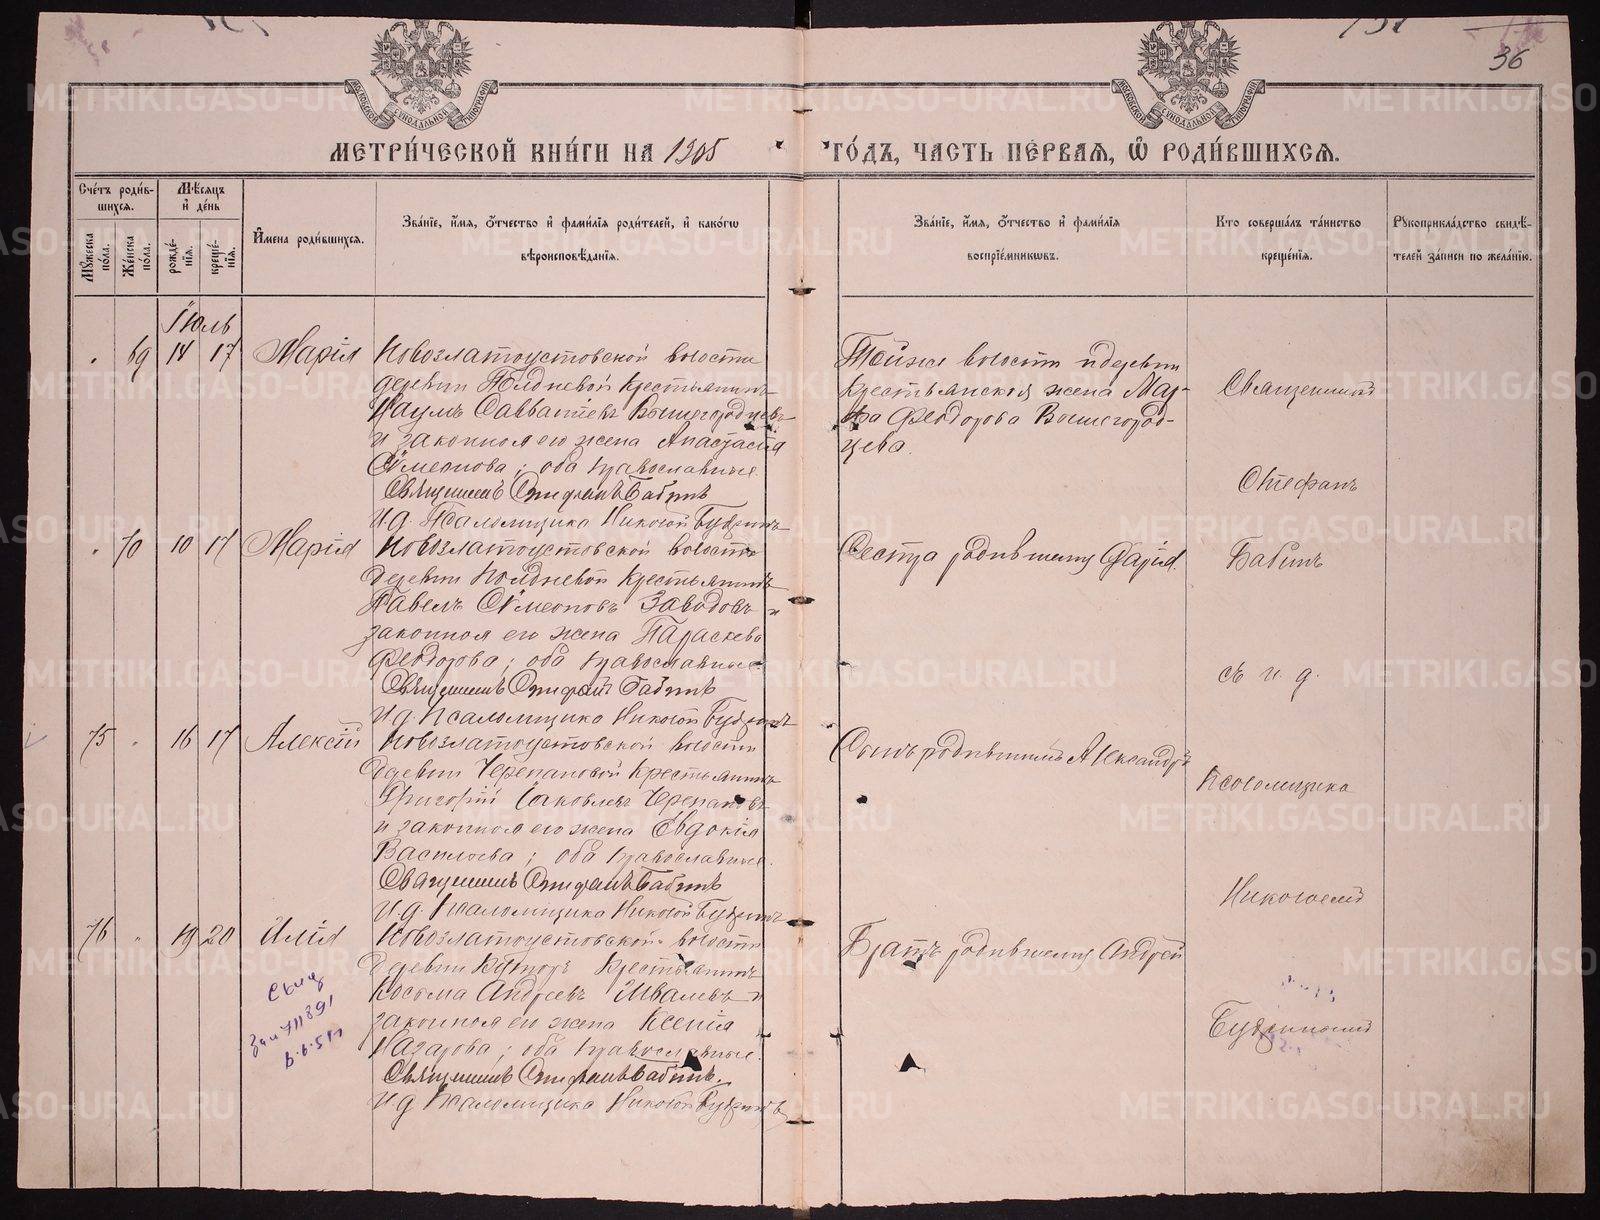 36
МЕТРИ́ЧЕСКОЙ КНИ́ГИ НА 1905
ГО́ДЪ, ЧАСТЬ ПЕ́РВАЯ, Ѡ РОДИ́ВШИХСЯ.
Сче́тъ роди́в-
шихся.
Мѣ́сяцъ
и҆ де́нь
Мꙋ́жеска
по́ла.
Же́нска
по́ла.
рожде́-
нїѧ.
креще́-
нїѧ.
И҆мена роди́вшихсѧ.
Зва́нїе, и҆́мѧ, о҆́тчество и҆ фами́лїѧ роди́телей, и҆ како́гѡ
вѣроисповѣ́данїѧ.
Зва́нїе, и҆́мѧ, о҆́тчество и҆ фами́лїѧ
воспрїе́мникѡвъ.
Кто соверша́лъ та́инство
креще́нїѧ.
Рꙋкоприкла́дство свидѣ́-
телей за́писи по жела́нїю.
Іюль
69 14 17 Марія
Новозлатоустовской волости
деревни Полдневой крестьянинъ
Наумъ Савватіевъ Вышегородцевъ
и законная его жена Анастасія
Сѵмеонова; оба православные.
Священникъ Стефанъ Бабинъ
И.д. Псаломщика Николай
Тойже волости и деревни
крестьянская жена Мар-
ѳа Феодорова Вышегород-
цева.
Священникъ
Стефанъ
70 10 17 Марія
Новозлатоустовской волости
деревни Полдневой крестьянинъ
Павелъ Сѵмеоновъ Заводовъ и
законная его жена Параскева
Феодорова; оба православные.
Священникъ Стефанъ Бабинъ
И.д. Псаломщика Николай
Сестра родившаго Марія.
Бабинъ
съ и. д.
75 16 17 Алексій
Новозлатоустовской волости
деревни Черепановой крестьянинъ
Григорій Іаковлевъ Черепановъ
и законная его жена Евдокія
Василіева; оба православные.
Священникъ Стефанъ Бабинъ
И.д. Псаломщика Николай
Сынъ родившаго Александръ
Псаломщика
Николаемъ
76 19 20 Илія
Новозлатоустовской волости
деревни крестьянинъ
Косьма Андреевъ и
законная его жена Ксенія
Назарова; оба православные.
Священникъ Стефанъ Бабинъ.
И.д. Псаломщика Николай
Братъ родившаго Андрей